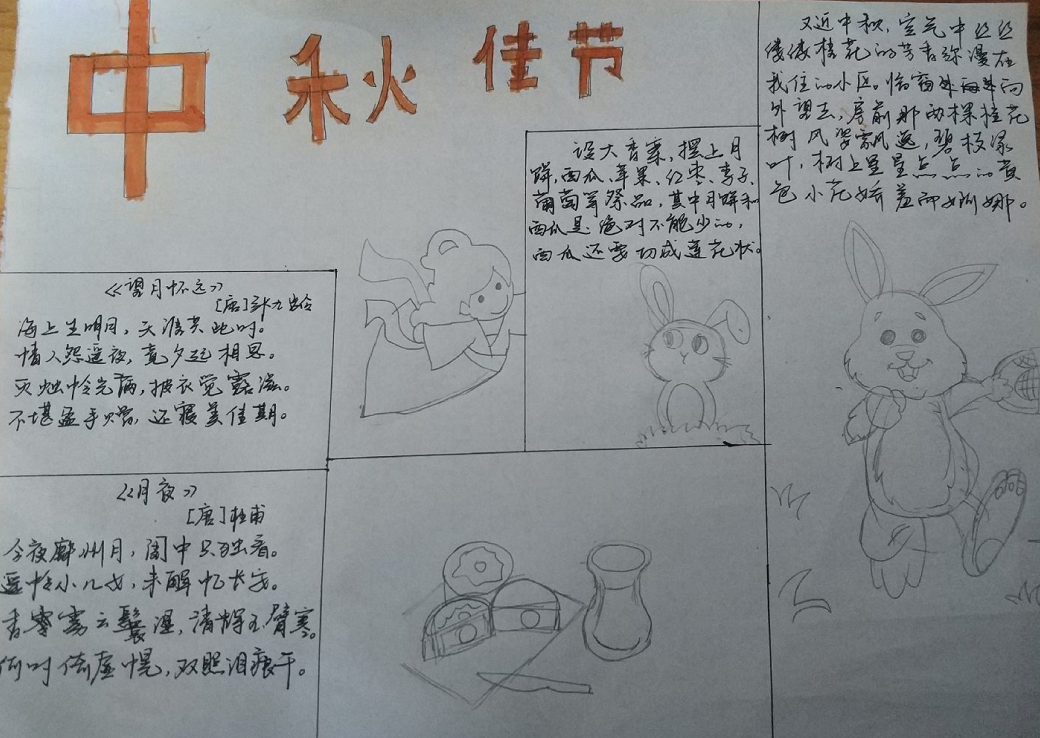 中秋佳节
又近中秋,空气中丝丝
缕缕桂花的芳香弥漫在
我住的小区。临窗向
外望去,房前那两棵桂花
树风姿飘逸,碧枝绿
叶,树上星星点点的黄
色小花娇羞而婀娜。
设大香案,摆上月
饼,西瓜、苹果、红枣、李子、
葡萄等祭品,其中月饼和
西瓜是绝对不能少的,
西瓜还要切成莲花状。
《望月怀远》
[唐]张九龄
海上生明月,天涯共此时。
情人怨遥夜,竟夕起相思。
灭烛怜光满,披衣觉露滋。
不堪盈手赠,还寝梦佳期。
《月夜》
[唐]杜甫
今夜鄜州月,闺中只独看。
遥怜小儿女,未解忆长安。
香雾云鬟湿,清辉玉臂寒。
何时倚虚幌,双照泪痕干。